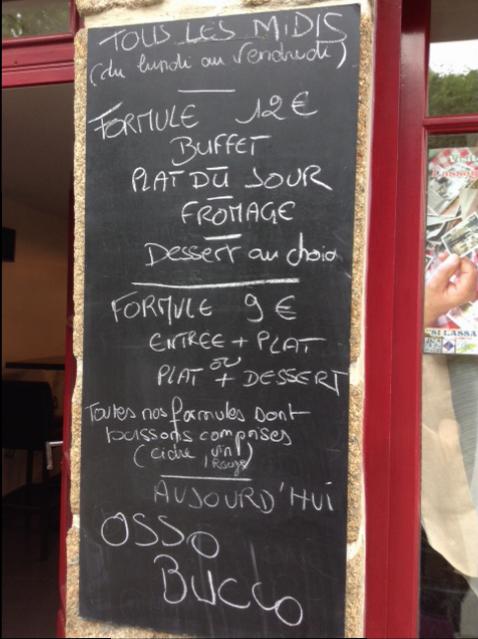 TOUS LES MIDIS
(du lundi au Vendredi)
FORMULE 12€
BUFFET
PLAT DU JOUR
FROMAGE
Dessert au choix
FORMULE 9€
ENTREE + PLAT
ou
PLAT + DESSERT
Toutes nos formules sont
boissons comprises
(cidre, vin
Rouge)
AUJOURD'HUI
OSSO
BUCCO